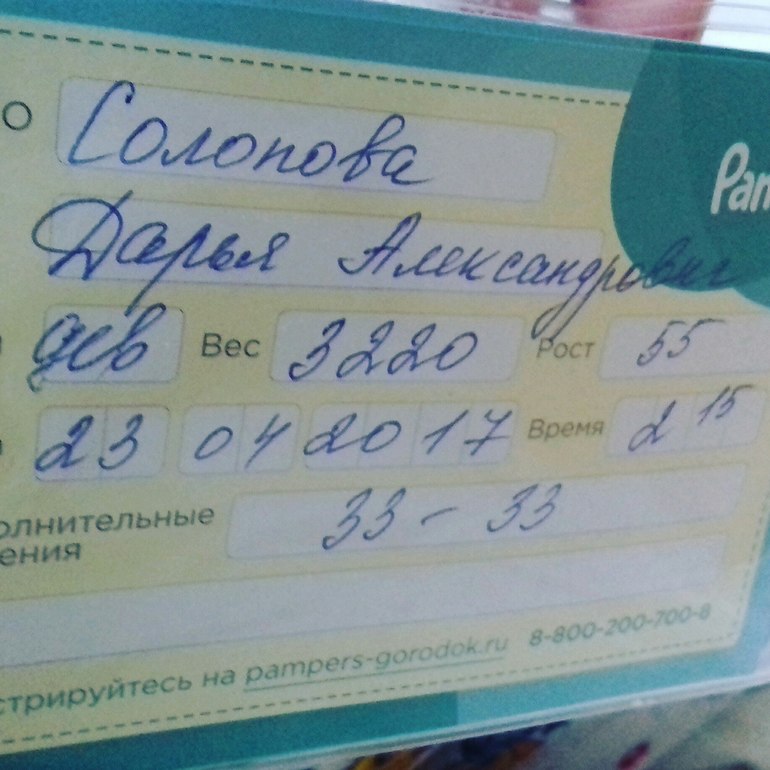 О Солопова
Pam
Дарья Александровна
дев Вес 3220 Рост 55
23 04 2017 Время 2 15
олнительные 33 - 33
ения
стрируйтесь на pampers-gorodok.ru 8-800-200-700-8